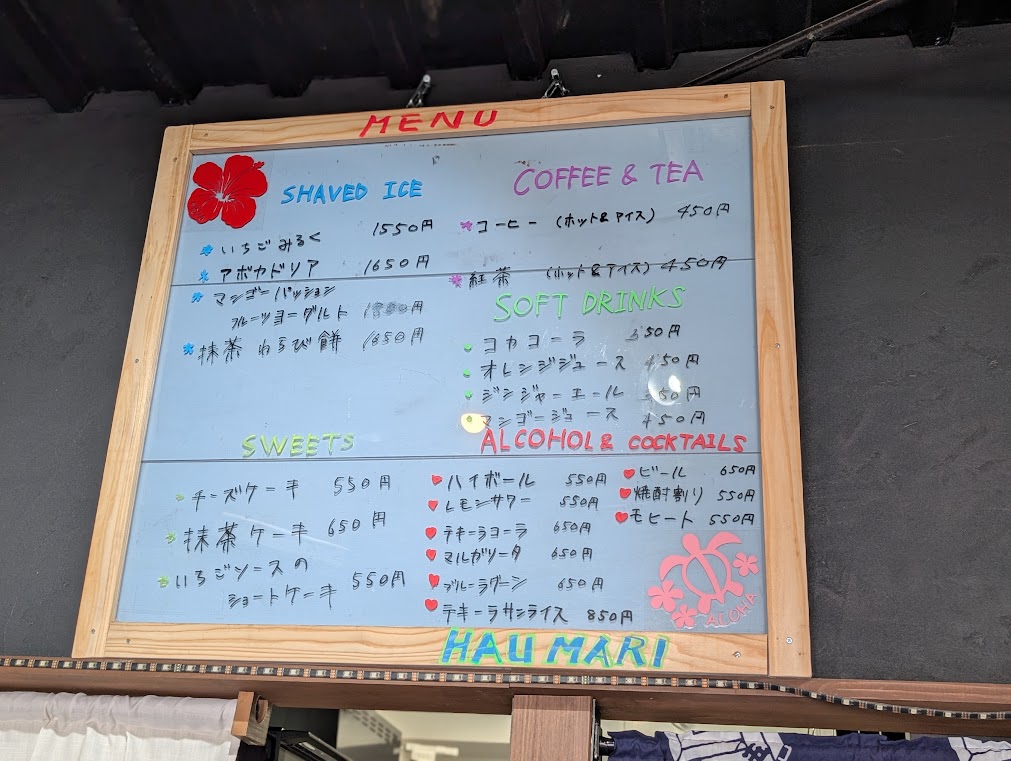 MENU
SHAVED ICE
いちごみるく 1550円
アボカドリア 1650円
マンゴーパッション
フルーツヨーグルト 円
抹茶わらび餅 1650円
COFFEE & TEA
コーヒー (ホット&アイス) 450円
紅茶 (ホット&アイス) 450円
SOFT DRINKS
コカコーラ 350円
オレンジジュース 450円
ジンジャーエール 円
マンゴージュース 450円
SWEETS
チーズケーキ 550円
抹茶ケーキ 650円
いちごソースの
ショートケーキ 550円
ALCOHOL & COCKTAILS
ハイボール 550円
レモンサワー 550円
テキーラコーラ 650円
マルガリータ 650円
ブルーラグーン 650円
テキーラサンライス 850円
ビール 650円
焼酎割り 550円
モヒート 550円
ALOHA
HAU MARI